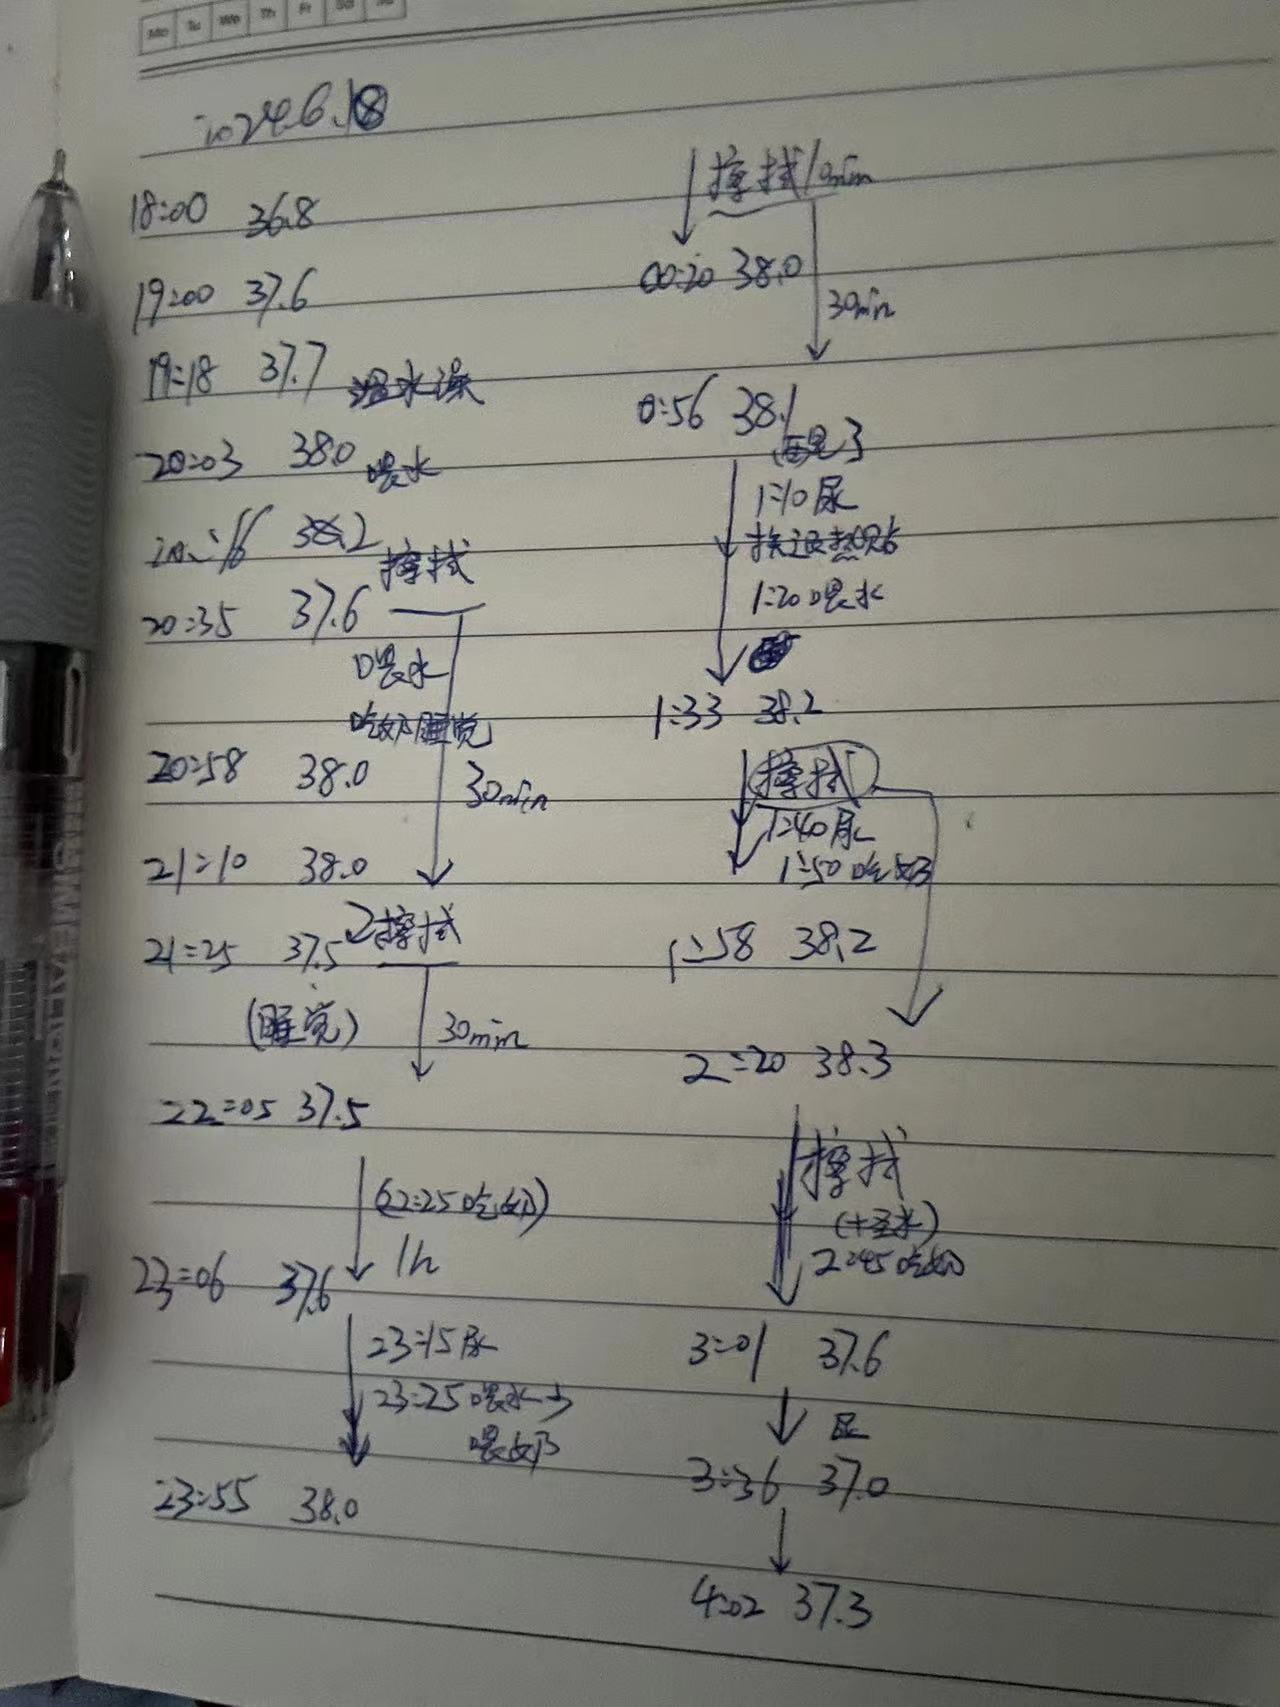 Mo Tu We Th Fr Sa Su
2024.6.18
18:00 36.8
19:00 37.6
19:18 37.7 温水澡
20:03 38.0 喂水
20:16 38.2
擦拭
20:35 37.6
喂水
吃奶睡觉
20:58 38.0
30min
21:10 38.0
擦拭
21:25 37.5
(睡觉)
30min
22:05 37.5
(22:25吃奶)
1h
23:06 37.6
23:15尿
23:25喂水
喂奶
23:55 38.0
擦拭10min
00:20 38.0
30min
0:56 38.1
1:10尿
换退热贴
1:20喂水
1:33 38.2
擦拭
1:40尿
1:50吃奶
1:58 38.2
2:20 38.3
擦拭
2:45吃奶
3:01 37.6
尿
3:36 37.0
4:02 37.3